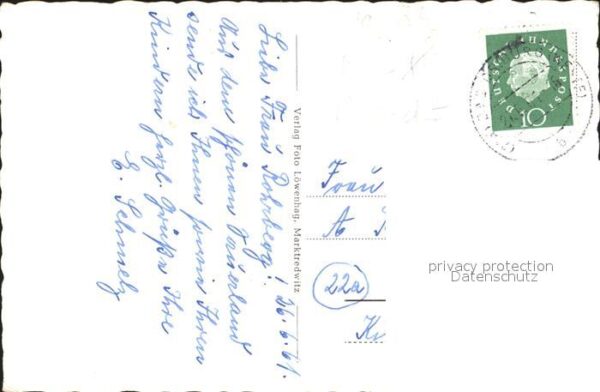 Liebe Frau Rohrberg! 26.6.61.
Aus dem schönen Sauerland
sende ich Ihnen sowie Ihren
Kindern herzl. Grüße Ihre
E. Schmelz
Verlag Foto Löwenhag, Marktredwitz
Frau
A
22a
DEUTSCHE BUNDESPOST
10
privacy protection
Datenschutz